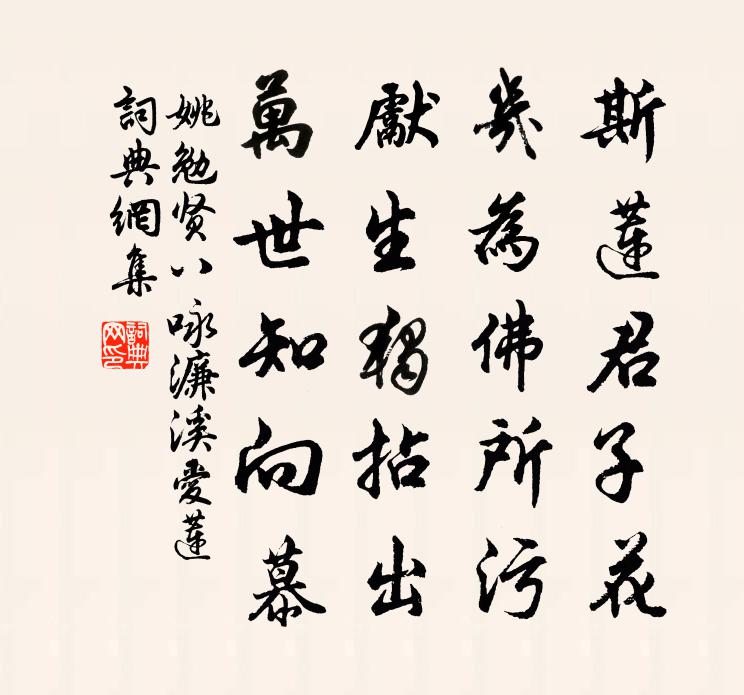 斯蓮君子花
幾為佛所污
獻生獨拈出
萬世知向慕
姚勉贤八咏濂溪愛蓮
詞典網集
詞典网印